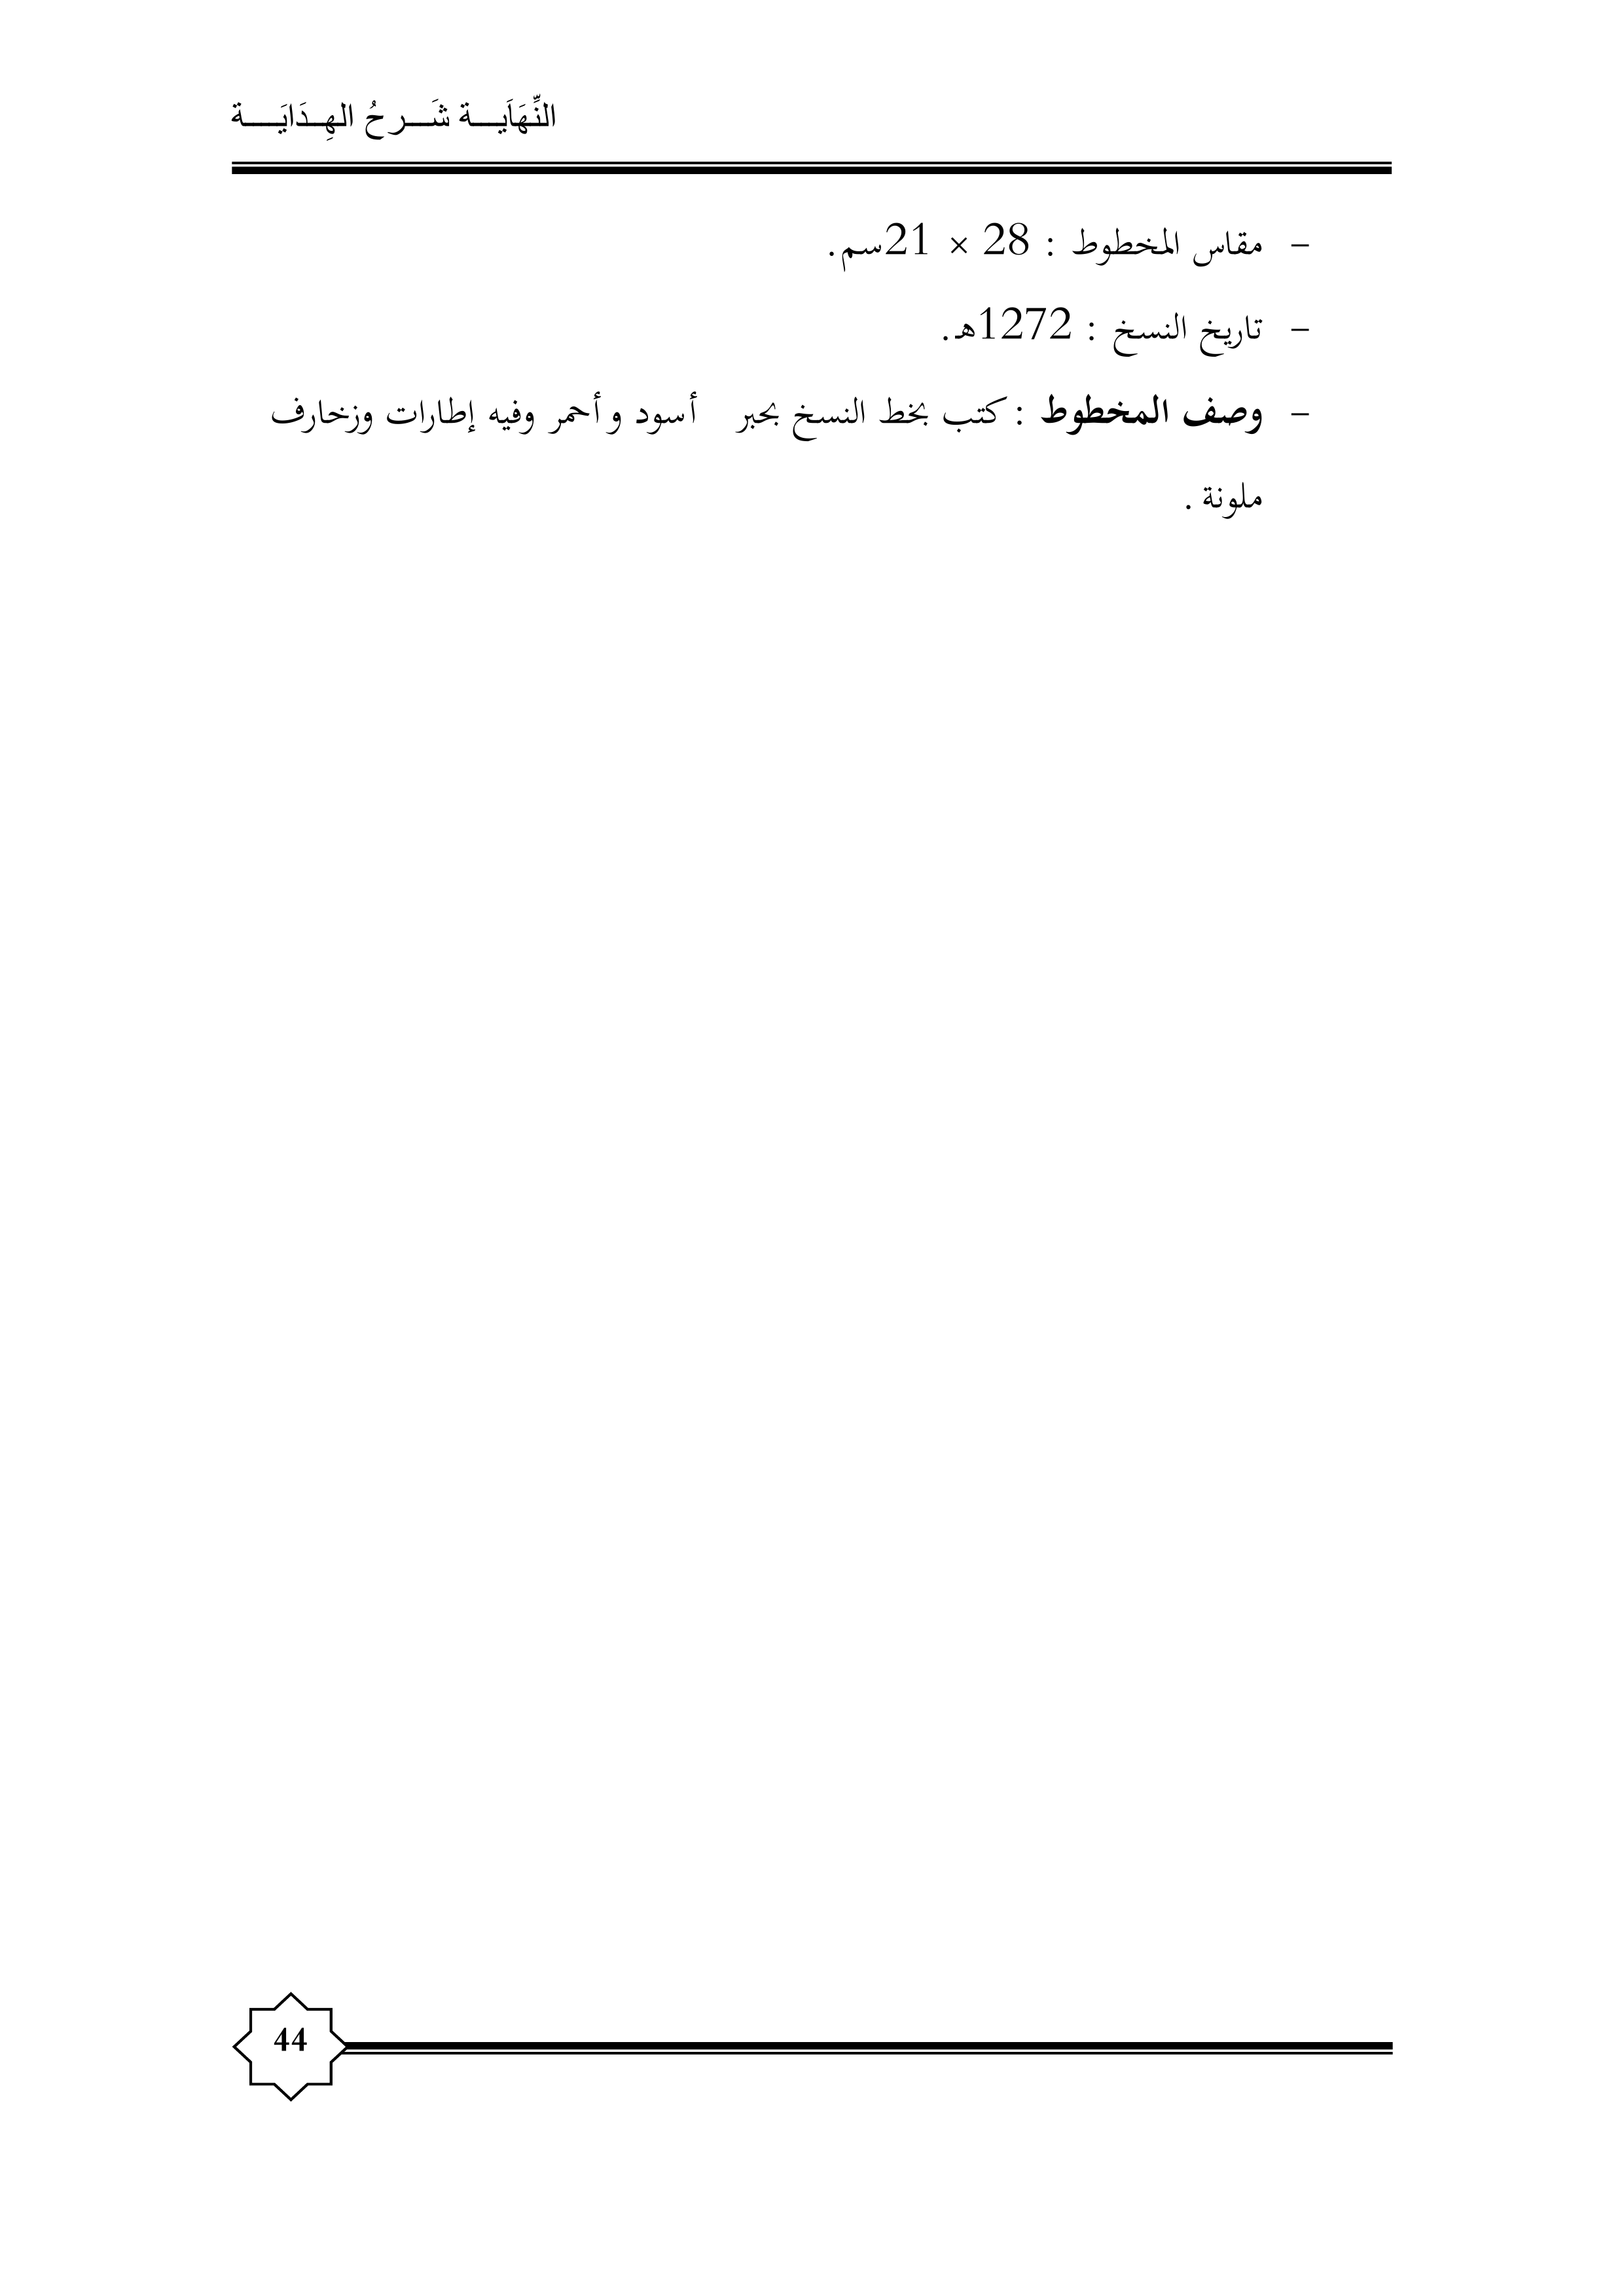 النِّهَايَـــة شَـــرحُ الـهِـدَايَـــة
– مقاس المخطوط : 28 × 21سم.
– تاريخ النسخ : 1272هـ.
– وصف المخطوط : كتب بخط النسخ بحبر أسود و أحمر وفيه إطارات وزخارف
ملونة .
44